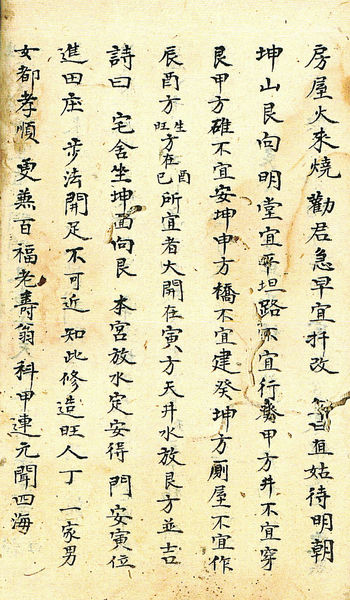 房屋火來燒 勸君急早宜拆改 直姑待明朝
坤山艮向 明堂宜平坦路不宜行癸甲方井不宜穿
艮甲方碓不宜安坤申方橋不宜建癸坤方厠屋不宜作
辰酉方旺生方在巳酉所宜者大開在寅方天井水放艮方並吉
詩曰 宅舍坐坤面向艮 本宮放水定安得 門安寅位
進田庄 步法開足不可近 知此修造旺人丁 一家男
女都孝順 更兼百福老壽翁 科甲連元聞四海